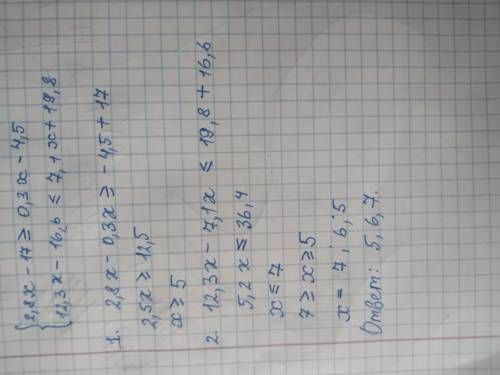 {2,8x - 17 ≥ 0,3x - 4,5
{12,3x - 16,6 ≤ 7,1x + 19,8
1. 2,8x - 0,3x ≥ -4,5 + 17
2,5x ≥ 12,5
x ≥ 5
2. 12,3x - 7,1x ≤ 19,8 + 16,6
5,2x ≤ 36,4
x ≤ 7
7 ≥ x ≥ 5
x = 7; 6; 5
Ответ: 5, 6, 7.